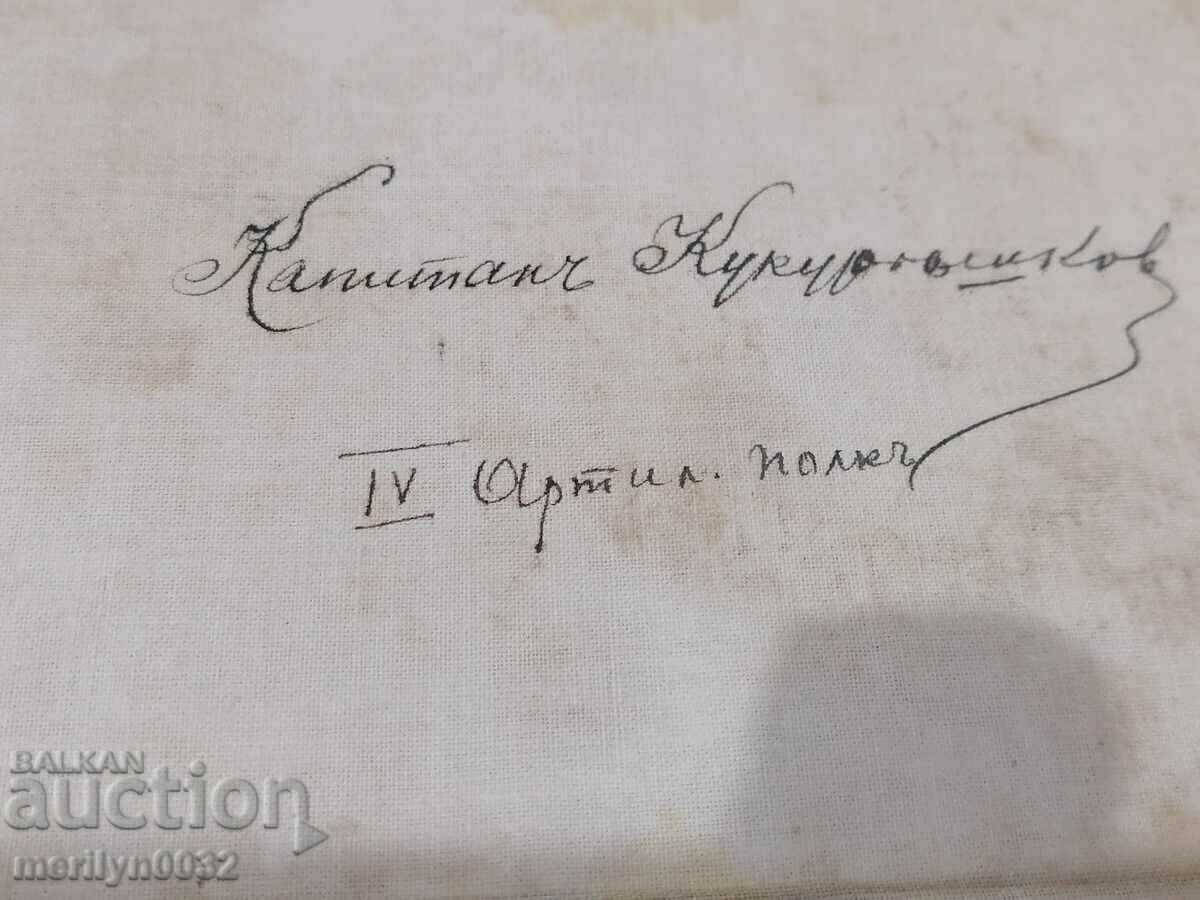 Капитанъ
IV Артил. полкъ
BALKAN
auction
merilyn0032